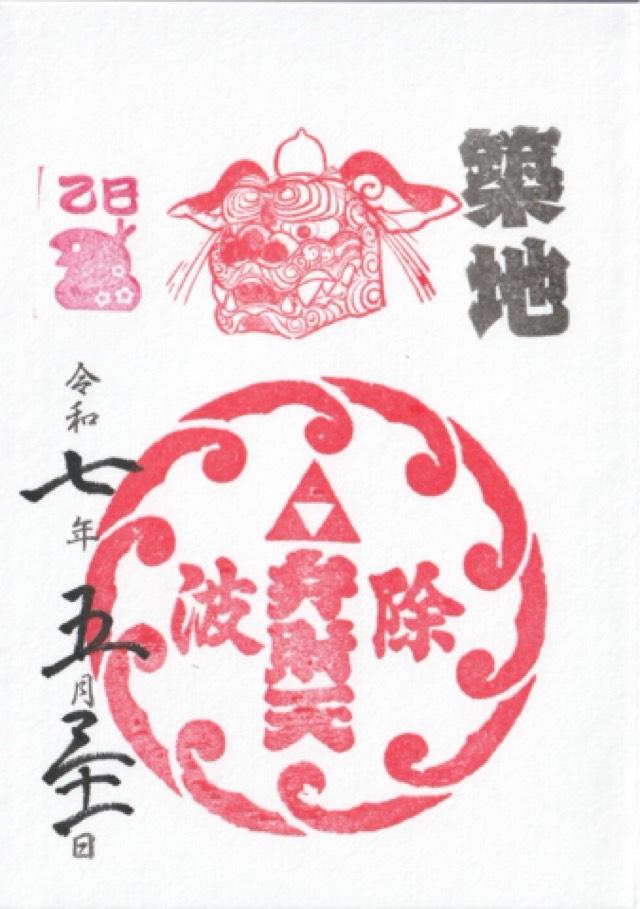 築地
乙巳
波除
弁財天
令和七年五月三十一日